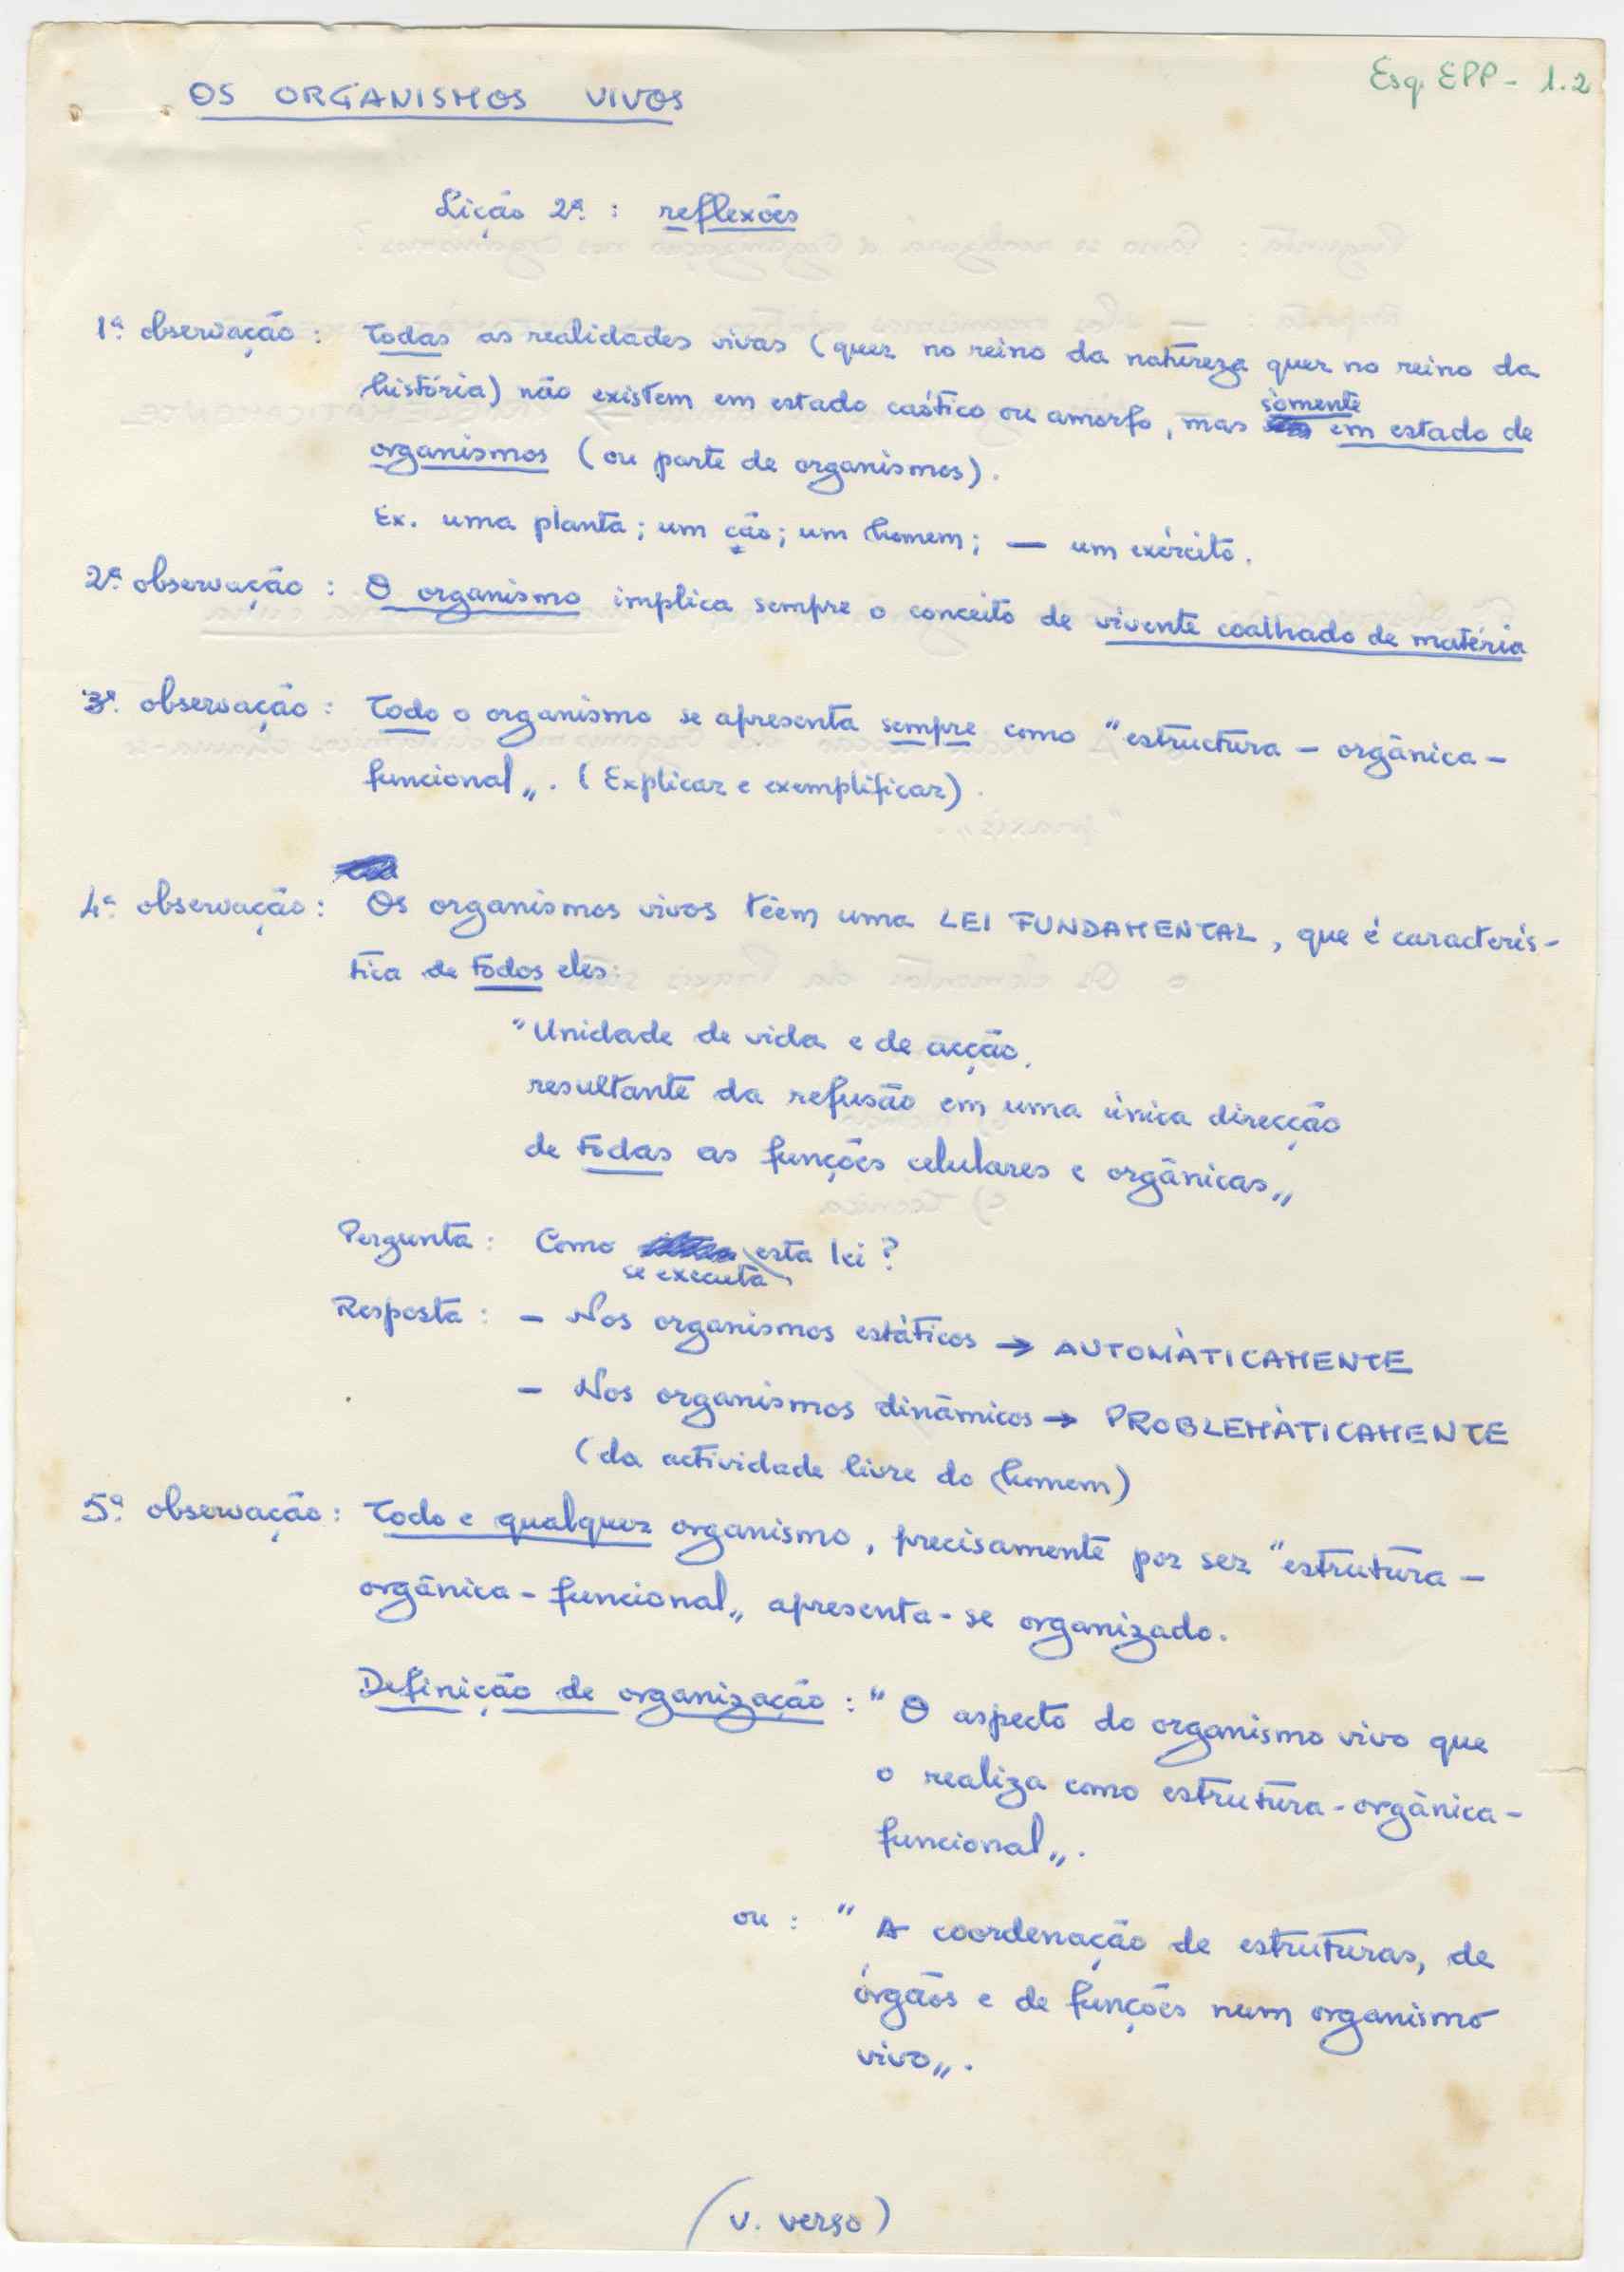 Esq. EPP - 1.2
OS ORGANISMOS VIVOS
Lição 2ª : reflexões
1ª observação : Todas as realidades vivas (quer no reino da natureza quer no reino da
história) não existem em estado caótico ou amorfo, mas sòmente em estado de
organismos (ou parte de organismos).
Ex. uma planta; um cão; um homem; — um exército.
2ª observação : O organismo implica sempre o conceito de vivente coalhado de matéria
3ª. observação : Todo o organismo se apresenta sempre como "estructura - orgânica -
funcional„. (Explicar e exemplificar).
4ª observação : Os organismos vivos têem uma LEI FUNDAMENTAL, que é caracterís-
tica de todos eles:
"Unidade de vida e de acção,
resultante da refusão em uma única direcção
de todas as funções celulares e orgânicas„
Pergunta : Como se executa esta lei ?
Resposta : - Nos organismos estáticos → AUTOMÀTICAMENTE
- Nos organismos dinâmicos → PROBLEMÀTICAMENTE
(da actividade livre do homem)
5ª observação : Todo e qualquer organismo, precisamente por ser "estrutura -
orgânica - funcional„ apresenta-se organizado.
Definição de organização : " O aspecto do organismo vivo que
o realiza como estrutura - orgânica -
funcional„.
ou : " A coordenação de estruturas, de
órgãos e de funções num organismo
vivo„.
(v. verso)